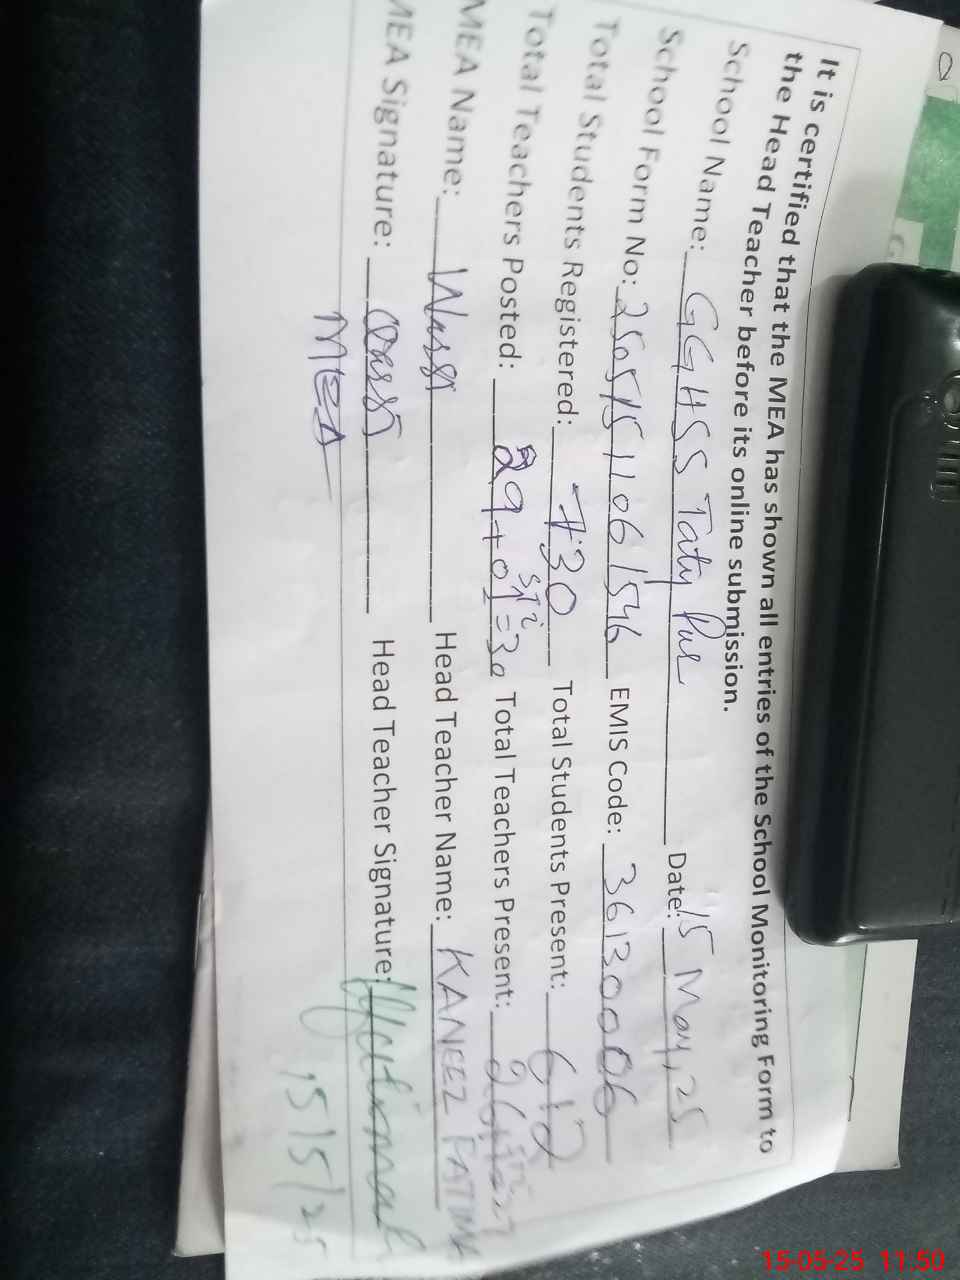 It is certified that the MEA has shown all entries of the School Monitoring Form to
the Head Teacher before its online submission.
School Name: GGHSS Taty Pur Date: 15 May, 25
School Form No: 25051511061546 EMIS Code: 36130006
Total Students Registered: 730 Total Students Present: 612
Total Teachers Posted: 29+01=30 Total Teachers Present: 26
MEA Name: Head Teacher Name: KANEEZ FATIMA
MEA Signature: Head Teacher Signature:
MEA 15/5/25
15-05-25 11:50